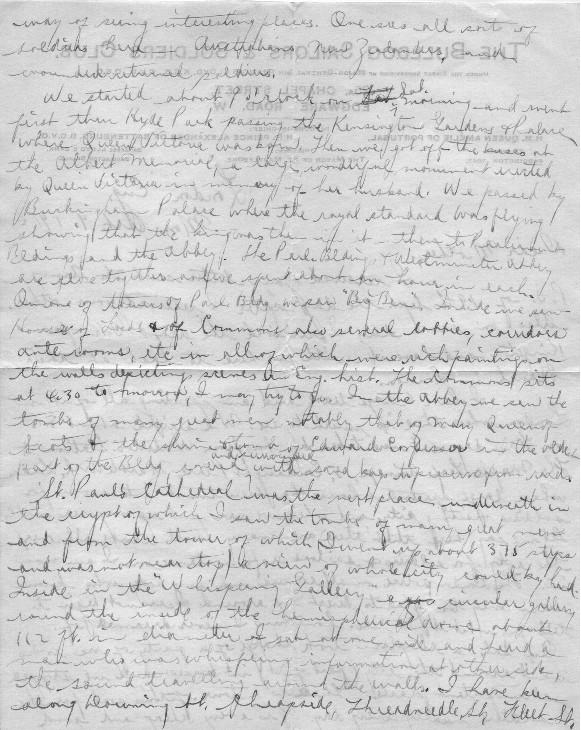 way of seeing interesting places. One sees all sorts of
soldiers here Australians, New Zealanders, and
soldiers.
We started about o'clock on Sat. morning and went
first thru Hyde Park passing the Kensington Gardens & Palace
where Queen Victoria was born. Then we got off the buses at
the Albert Memorial, a large wonderful monument erected
by Queen Victoria in memory of her husband. We passed by
Buckingham Palace where the royal standard was flying
showing that the king was then in it - then to Parliament
Bldings and the Abbey. The Parl. Blding. & Westminster Abbey
are and we spent about an hour in each.
On one of towers of Parl. Bldg we saw "Big Ben". Inside we saw
House of Lords & of Commons also several lobbies, corridors
ante rooms, etc in all of which were rich paintings on
the walls depicting scenes in Eng. hist. The Commons sits
at 4:30 tomorrow, I may try to go. In the Abbey we saw the
tombs of many great men notably that of Mary Queen of
Scots & the shrine & tomb of Edward Confessor in the oldest
part of the Bldg, covered with sand bags to preserve from raids.
St. Paul's Cathedral was the next place, underneath in
the crypt of which I saw the tombs of many great men
and from the tower of which I went up about 375 steps
and was not near top, a view of whole city could be had.
Inside in the "Whispering Gallery" a circular gallery
round the inside of the hemispherical dome about
112 ft. in diameter I sat at one side and heard a
man who was whispering information at other side,
the sound travelling around the walls. I have been
along Downing St., Cheapside, Threadneedle St, Fleet St.